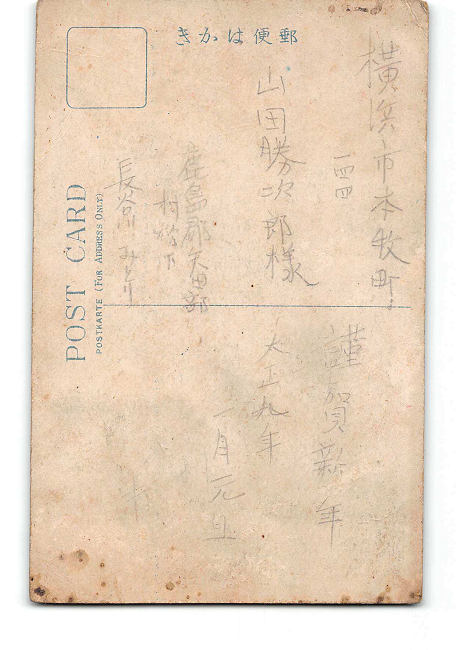 郵便はかき
横浜市本牧町
一四四
山田勝次郎様
鹿島郡矢田部
長谷川みどり
謹賀新年
大正九年
一月元旦
POST CARD
POSTKARTE (FOR ADDRESS ONLY)